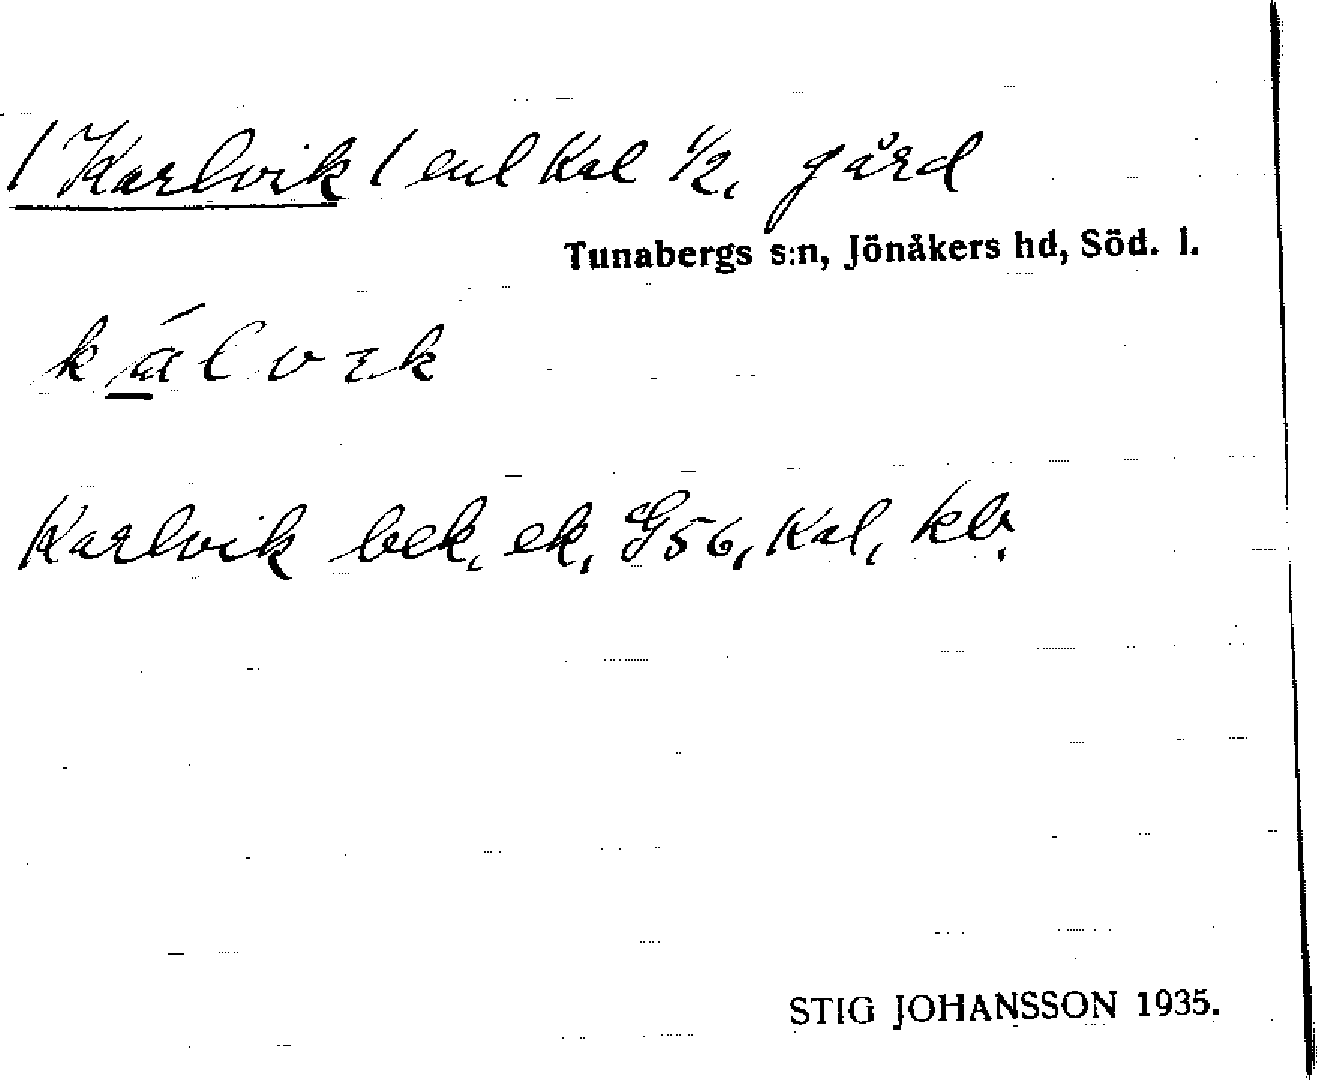 / Karlvik / enl Kal 1/2, gård
Tunabergs s:n, Jönåkers hd, Söd. l.
Karlvik bek, ek, G56, Kal, kb.
STIG JOHANSSON 1935.